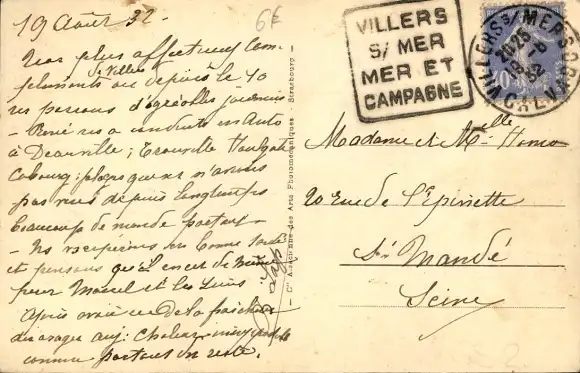 19 Août 32.
6€
Nos plus affectueux com
pliments de Villers où depuis le 10
nous passons d'agréables journées
- René nous a conduits en auto
à Deauville, Trouville, Houlgate
Cabourg; plages que ns n'avions
pas vues depuis longtemps
beaucoup de monde partout -
- Ns ns espérons en bonne santé
et pensons qu'il en est de même
pour Marcel et les siens
Après avoir eu de la fraîcheur
des orages auj. chaleur
comme partout du reste.
Cie Alsacienne des Arts Photomécaniques - Strasbourg
VILLERS
S/ MER
MER ET
CAMPAGNE
VILLERS S/ MER
20 25
CALVADOS
Madame et Melle
20 rue de l'Epinette
St Mandé
Seine